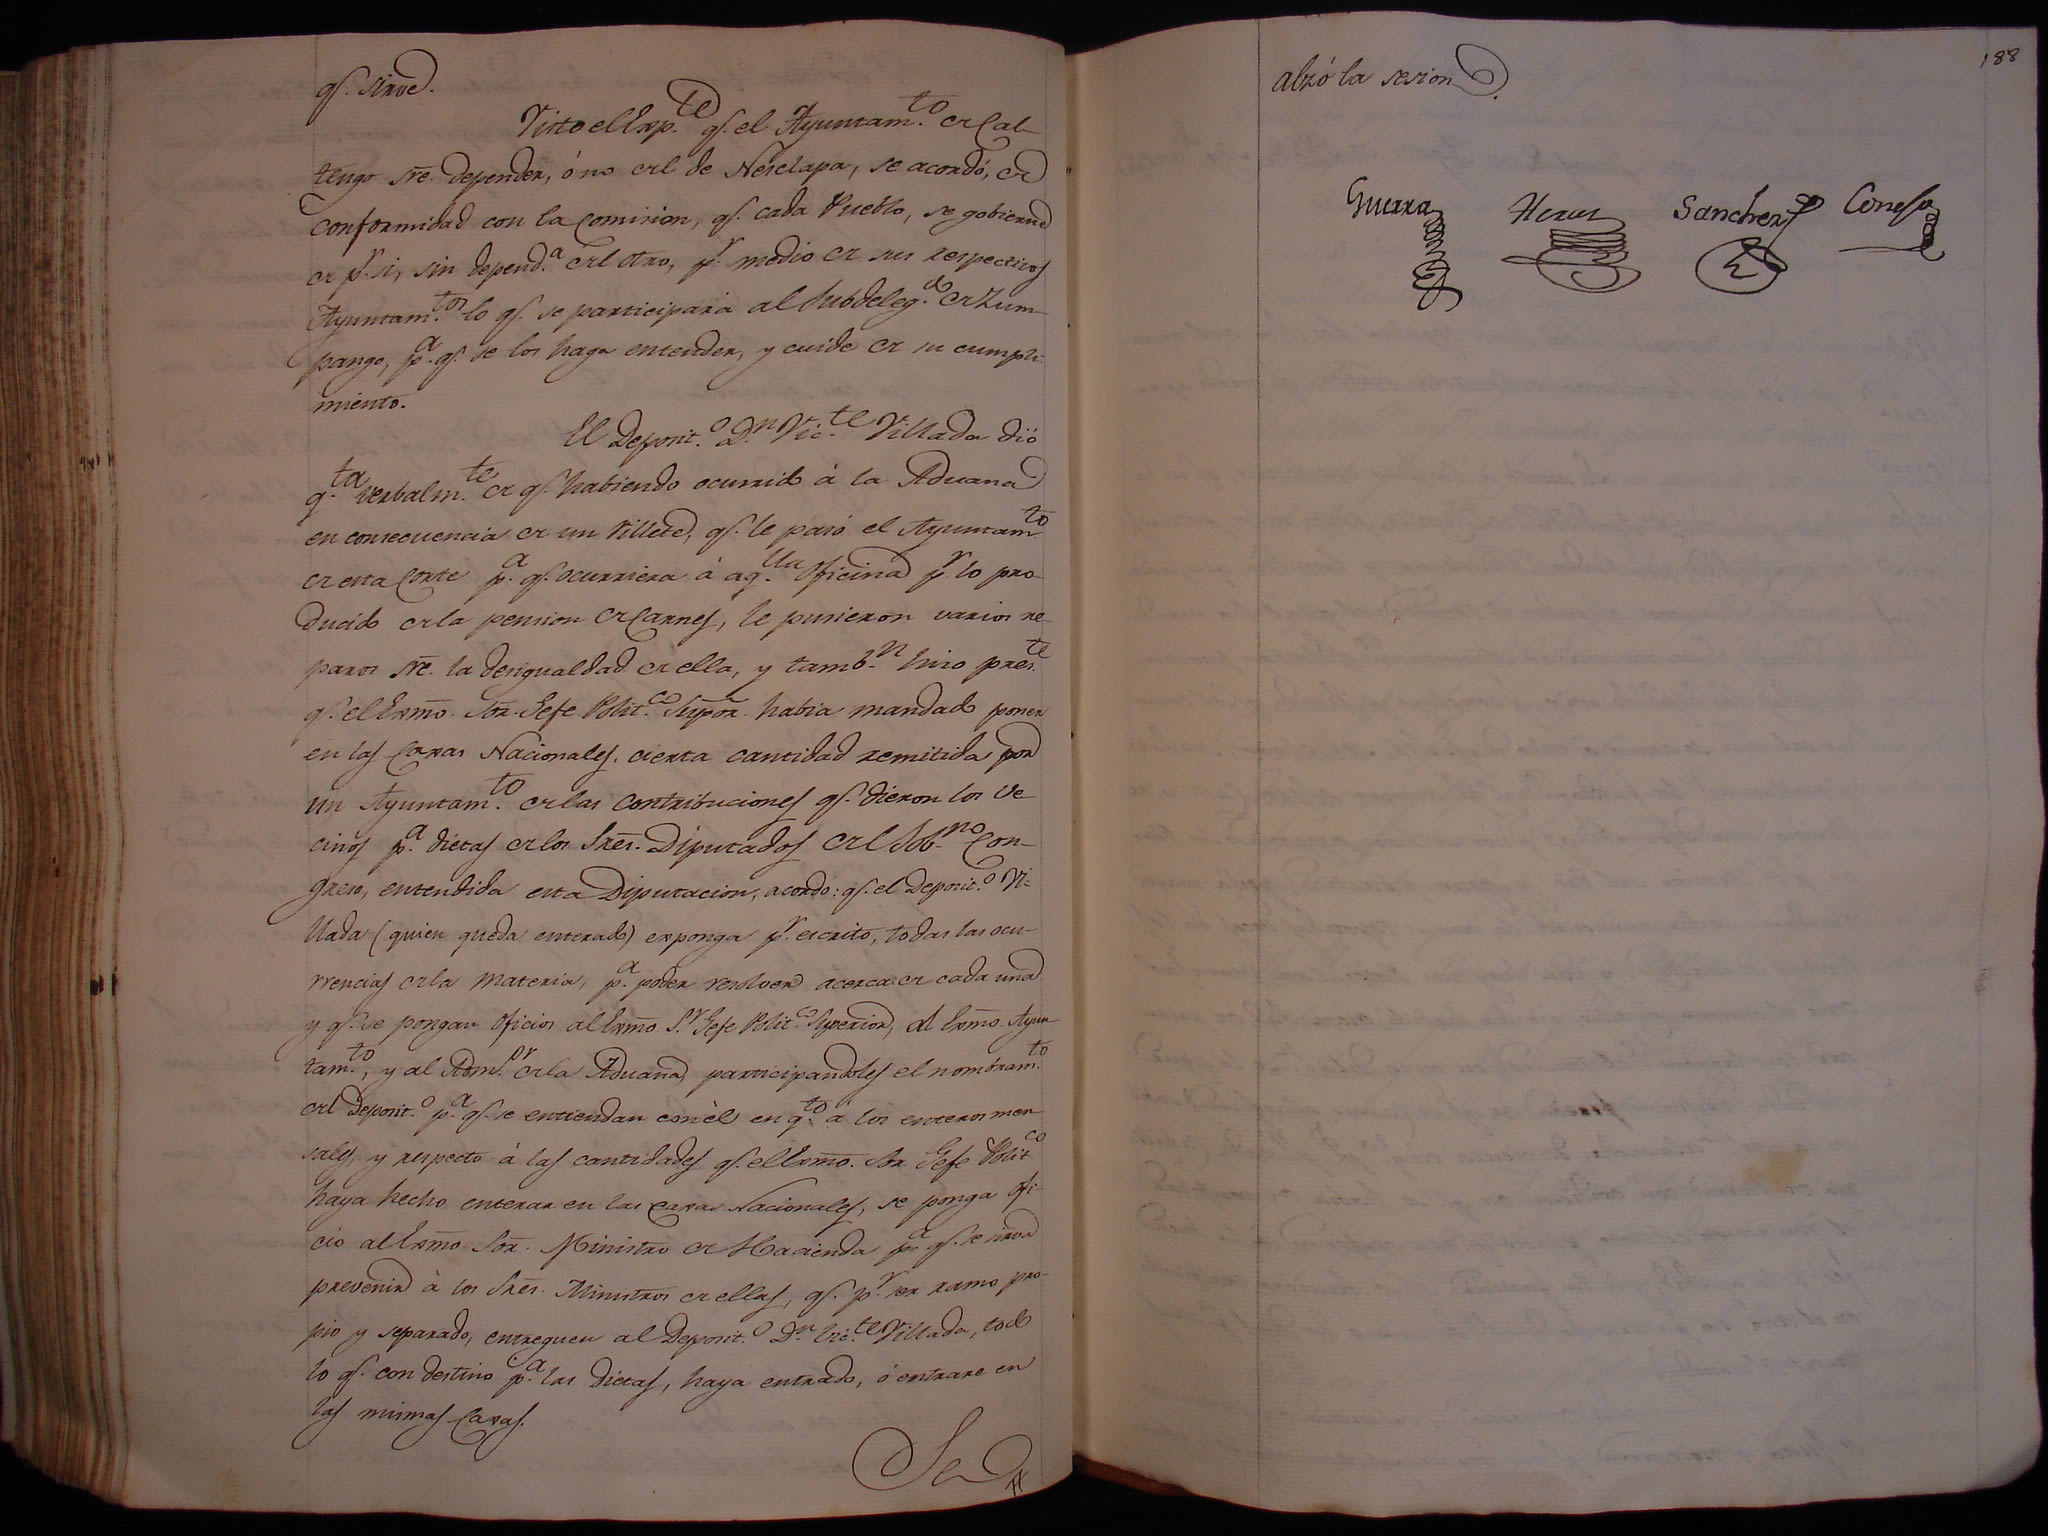 qᵉ. sirve.
Visto el Exp.ᵗᵉ qᵉ. el Ayuntam.ᵗᵒ de Cal-
tengo sre. depender, ó no del de Nesclapa, se acordó, de
conformidad con la comision, qᵉ. cada Pueblo, se gobierne
de pʳ. si, sin depend.ᵃ del otro, pʳ. medio de sus respectivos
Ayuntam.ᵗᵒˢ lo qᵉ. se participará al Subdeleg.ᵈᵒ de Zum-
pango, pᵃ. qᵉ. se los haga entender, y cuide de su cumpli-
miento.
El Deposit.ᵒ Dⁿ Vic.ᵗᵉ Villada dió
q.ᵗᵃ verbalm.ᵗᵉ de qᵉ. habiendo ocurrido á la Aduana
en consecuencia de un Villete, qᵉ. le pasó el Ayuntam.ᵗᵒ
de esta Corte pᵃ. qᵉ. ocurriera á aq.ˡˡᵃ Oficina pʳ. lo pro-
ducido de la pension de Carnes, le pusieron varios re-
paros sre. la desigualdad de ella, y tamb.ⁿ hizo pres.ᵗᵉ
qᵉ. el Exmo. Sor. Gefe Polit.ᶜᵒ Supor. habia mandado poner
en las Caxas Nacionales, cierta cantidad remitida por
un Ayuntam.ᵗᵒ de las contribuciones qᵉ. dieron los Ve-
cinos pᵃ. dietas de los Sres. Diputados del Sob.ⁿᵒ Con-
greso, entendida esta Diputacion, acordó: qᵉ. el Deposit.ᵒ Vi-
llada (quien queda enterado) exponga pʳ. escrito, todas las ocu-
rrencias de la materia, pᵃ. poder resolver acerca de cada una
y qᵉ. se pongan oficios al Exmo. S.ʳ Gefe Polit.ᶜᵒ Superior, al Exmo. Ayun-
tam.ᵗᵒ, y al Adm.ᵒʳ de la Aduana, participandoles el nombram.ᵗᵒ
del Deposit.ᵒ pᵃ. qᵉ. se entiendan con él en q.ᵗᵒ á los enteros men-
sales, y respecto á las cantidades qᵉ. el Exmo. Sor. Gefe Polit.ᶜᵒ
haya hecho enterar en las caxas Nacionales, se ponga ofi-
cio al Exmo. Sor. Ministro de Hacienda pᵃ. qᵉ. se sirva
prevenir á los Sres. Ministros de ellas, qᵉ. pʳ. ser ramo pro-
pio y separado, entreguen al Deposit.ᵒ Dⁿ. Vic.ᵗᵉ Villada, todo
lo qᵉ. con destino pᵃ. las dietas, haya entrado, ó entrare en
las mismas Caxas.
Se
188
alzó la sesion.
Guerra Heras Sanchez Conejo